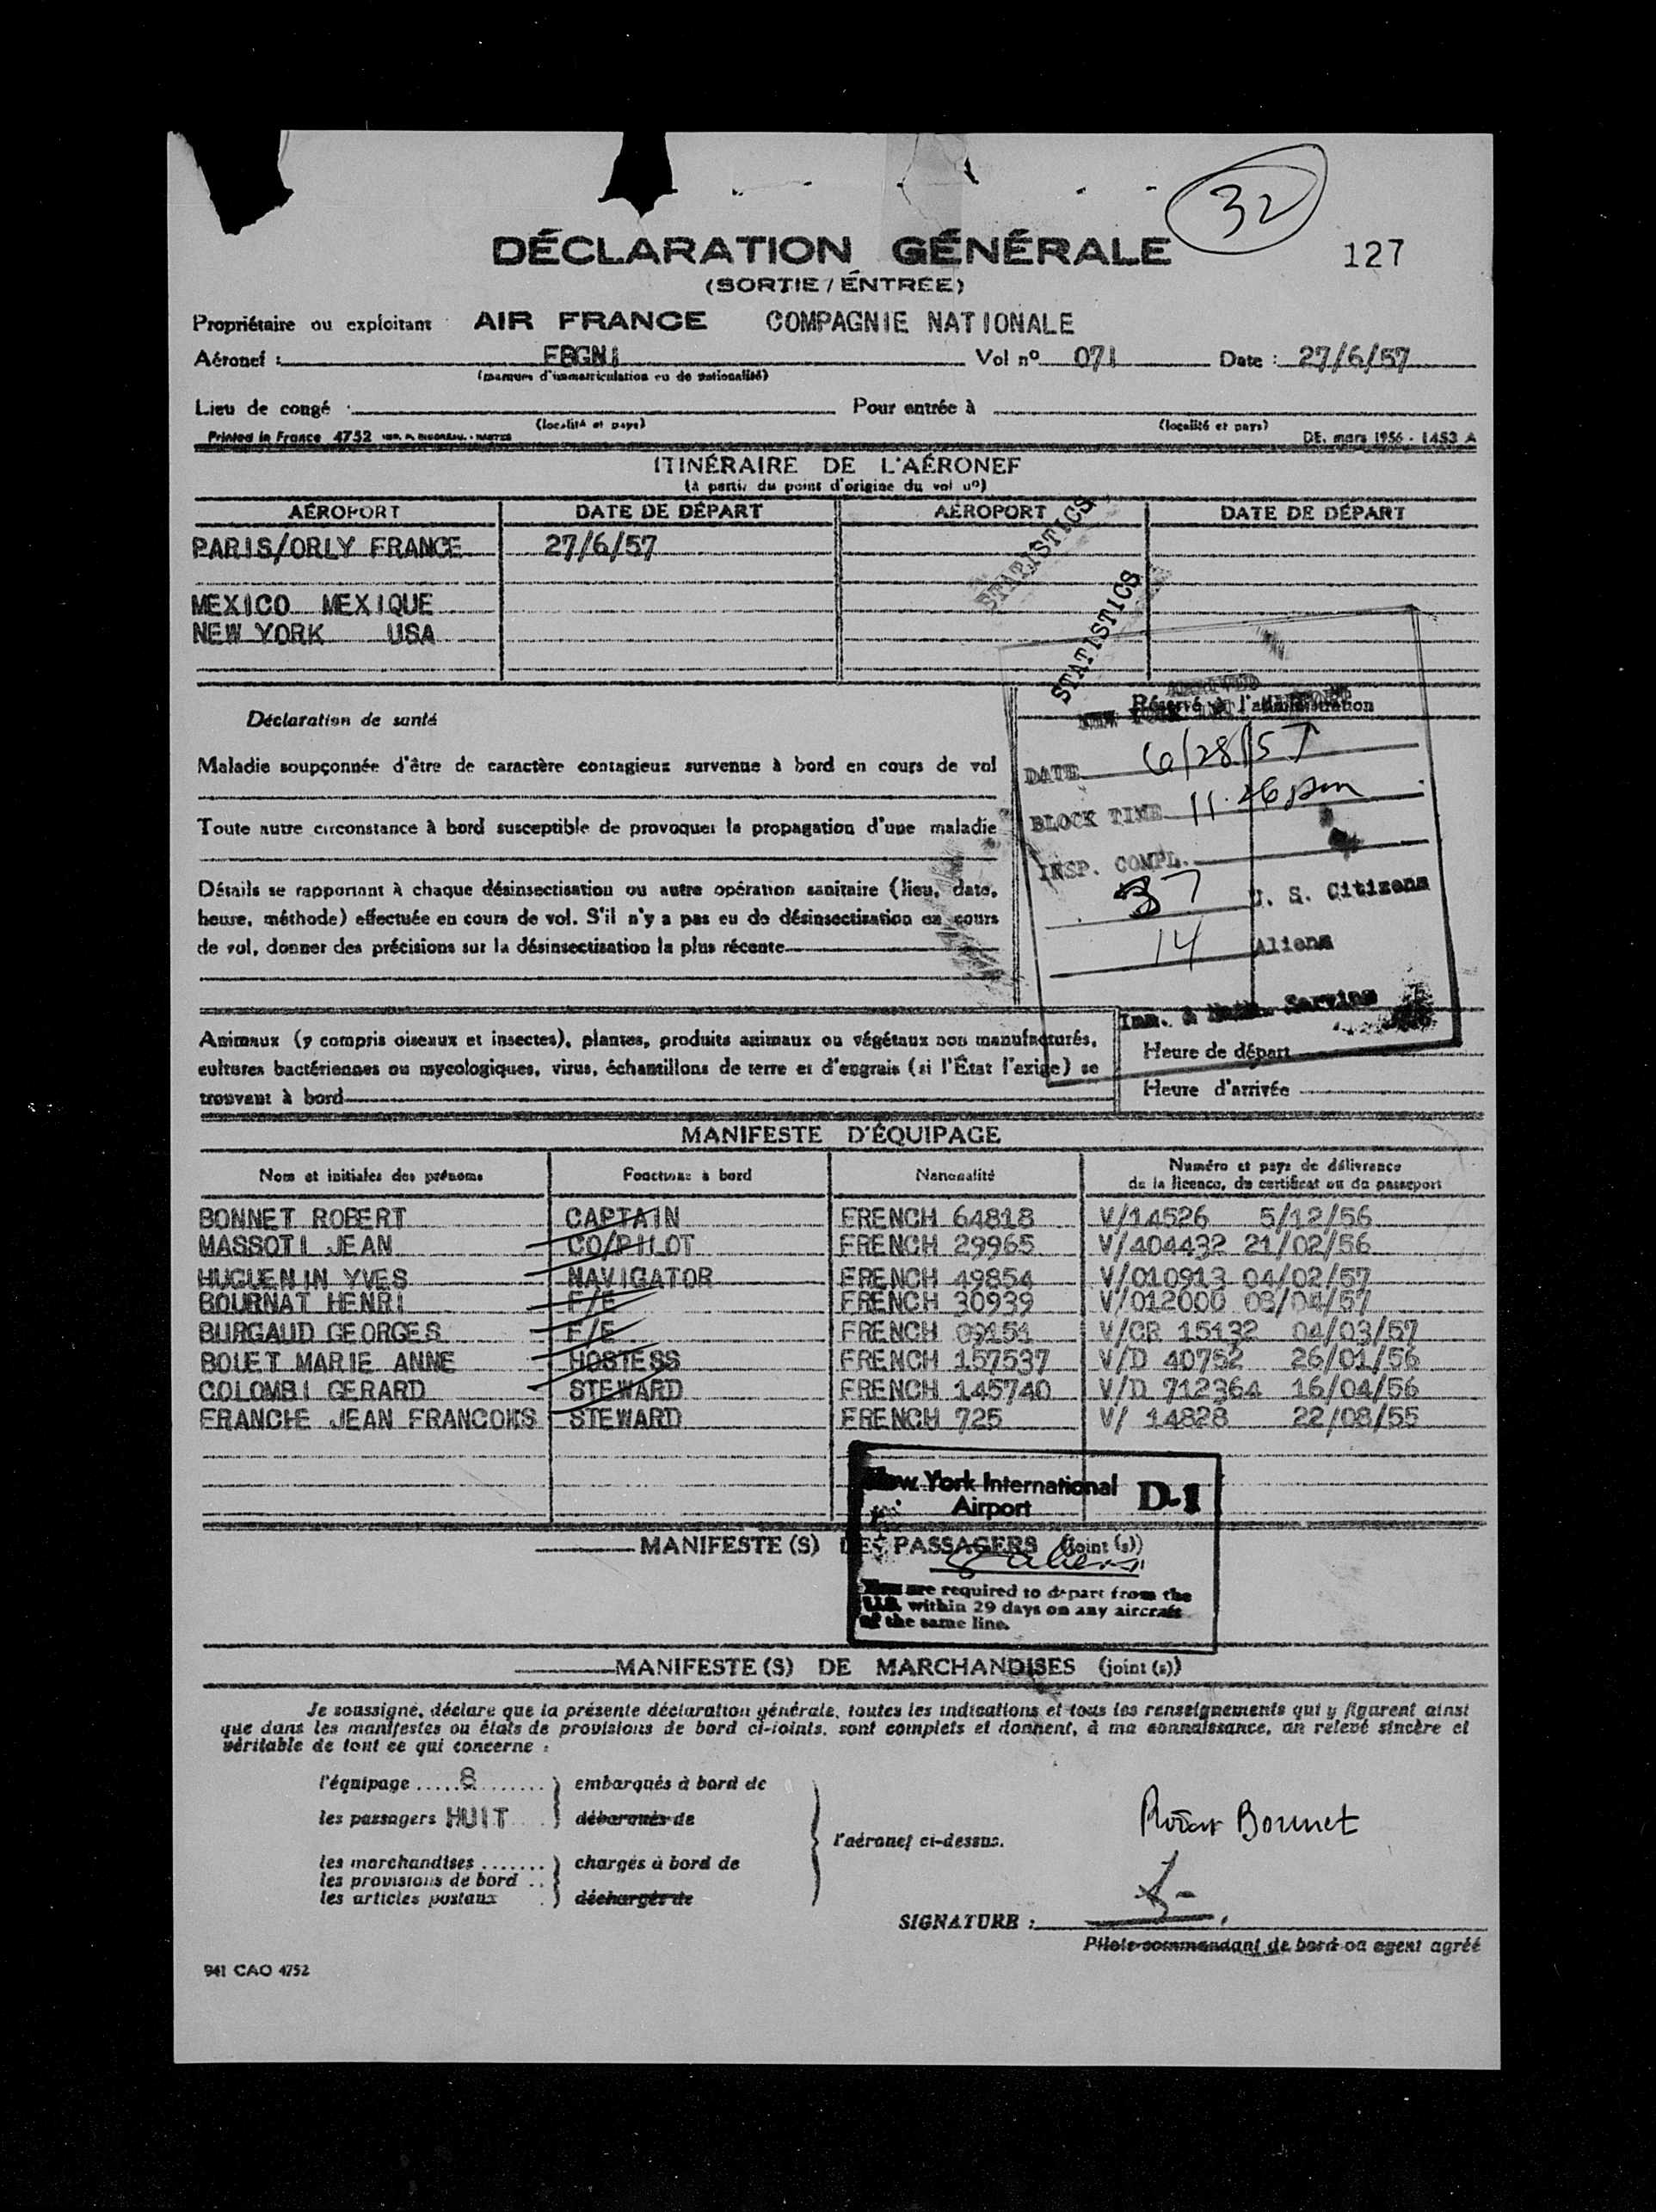 32
DÉCLARATION GÉNÉRALE
127
(SORTIE / ENTRÉE)
Propriétaire ou exploitant AIR FRANCE COMPAGNIE NATIONALE
Aéronef : FBGNI Vol nº 071 Date : 27/6/57
(marques d'immatriculation ou de nationalité)
Lieu de congé Pour entrée à
(localité et pays) (localité et pays)
Printed in France 4752 DE. mars 1956 - 1453 A
ITINÉRAIRE DE L'AÉRONEF
(à partir du point d'origine du vol nº)
AÉROPORT DATE DE DÉPART AÉROPORT DATE DE DÉPART
PARIS/ORLY FRANCE 27/6/57
STATISTICS
MEXICO MEXIQUE
NEW YORK USA
STATISTICS
ARRIVED
Déclaration de santé Réservé à l'administration
NEW YORK INT AIRPORT
Maladie soupçonnée d'être de caractère contagieux survenue à bord en cours de vol
DATE 6/28/57
Toute autre circonstance à bord susceptible de provoquer la propagation d'une maladie
BLOCK TIME 11.26 pm
INSP. COMPL.
Détails se rapportant à chaque désinsectisation ou autre opération sanitaire (lieu, date,
heure, méthode) effectuée en cours de vol. S'il n'y a pas eu de désinsectisation en cours
de vol, donner des précisions sur la désinsectisation la plus récente
37 U. S. Citizens
14 Aliens
Imm. & Natn. Service
Animaux (y compris oiseaux et insectes), plantes, produits animaux ou végétaux non manufacturés,
cultures bactériennes ou mycologiques, virus, échantillons de terre et d'engrais (si l'État l'exige) se
trouvant à bord
Heure de départ
Heure d'arrivée
MANIFESTE D'ÉQUIPAGE
Nom et initiales des prénoms Fonctions à bord Nationalité Numéro et pays de délivrance
de la licence, du certificat ou du passeport
BONNET ROBERT CAPTAIN FRENCH 64818 V/14526 5/12/56
MASSOTI JEAN CO/PILOT FRENCH 29965 V/404432 21/02/56
HUGUENIN YVES NAVIGATOR FRENCH 49854 V/010913 04/02/57
BOURNAT HENRI F/E FRENCH 30939 V/012000 08/04/57
BURGAUD GEORGES F/E FRENCH 09151 V/CR 15132 04/03/57
BOUET MARIE ANNE HOSTESS FRENCH 157537 V/D 40752 26/01/56
COLOMBI GERARD STEWARD FRENCH 145740 V/D 712364 16/04/56
FRANCHE JEAN FRANCOIS STEWARD FRENCH 725 V/ 14828 22/08/55
New York International
Airport D-1
MANIFESTE (S) DES PASSAGERS (joint (s))
8 aliens
You are required to depart from the
U.S. within 29 days on any aircraft
of the same line.
MANIFESTE (S) DE MARCHANDISES (joint (s))
Je soussigné, déclare que la présente déclaration générale, toutes les indications et tous les renseignements qui y figurent ainsi
que dans les manifestes ou états de provisions de bord ci-joints, sont complets et donnent, à ma connaissance, un relevé sincère et
véritable de tout ce qui concerne :
l'équipage 8 embarqués à bord de
les passagers HUIT débarqués de
l'aéronef ci-dessus.
les marchandises chargés à bord de
les provisions de bord
les articles postaux déchargés de
Bonnet
SIGNATURE :
Pilote commandant de bord ou agent agréé
941 CAO 4752